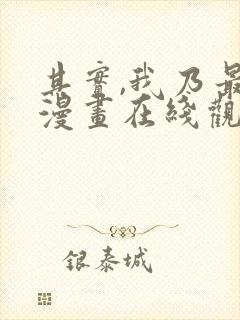 其實,我乃最
漫畫在綫觀
銀泰城